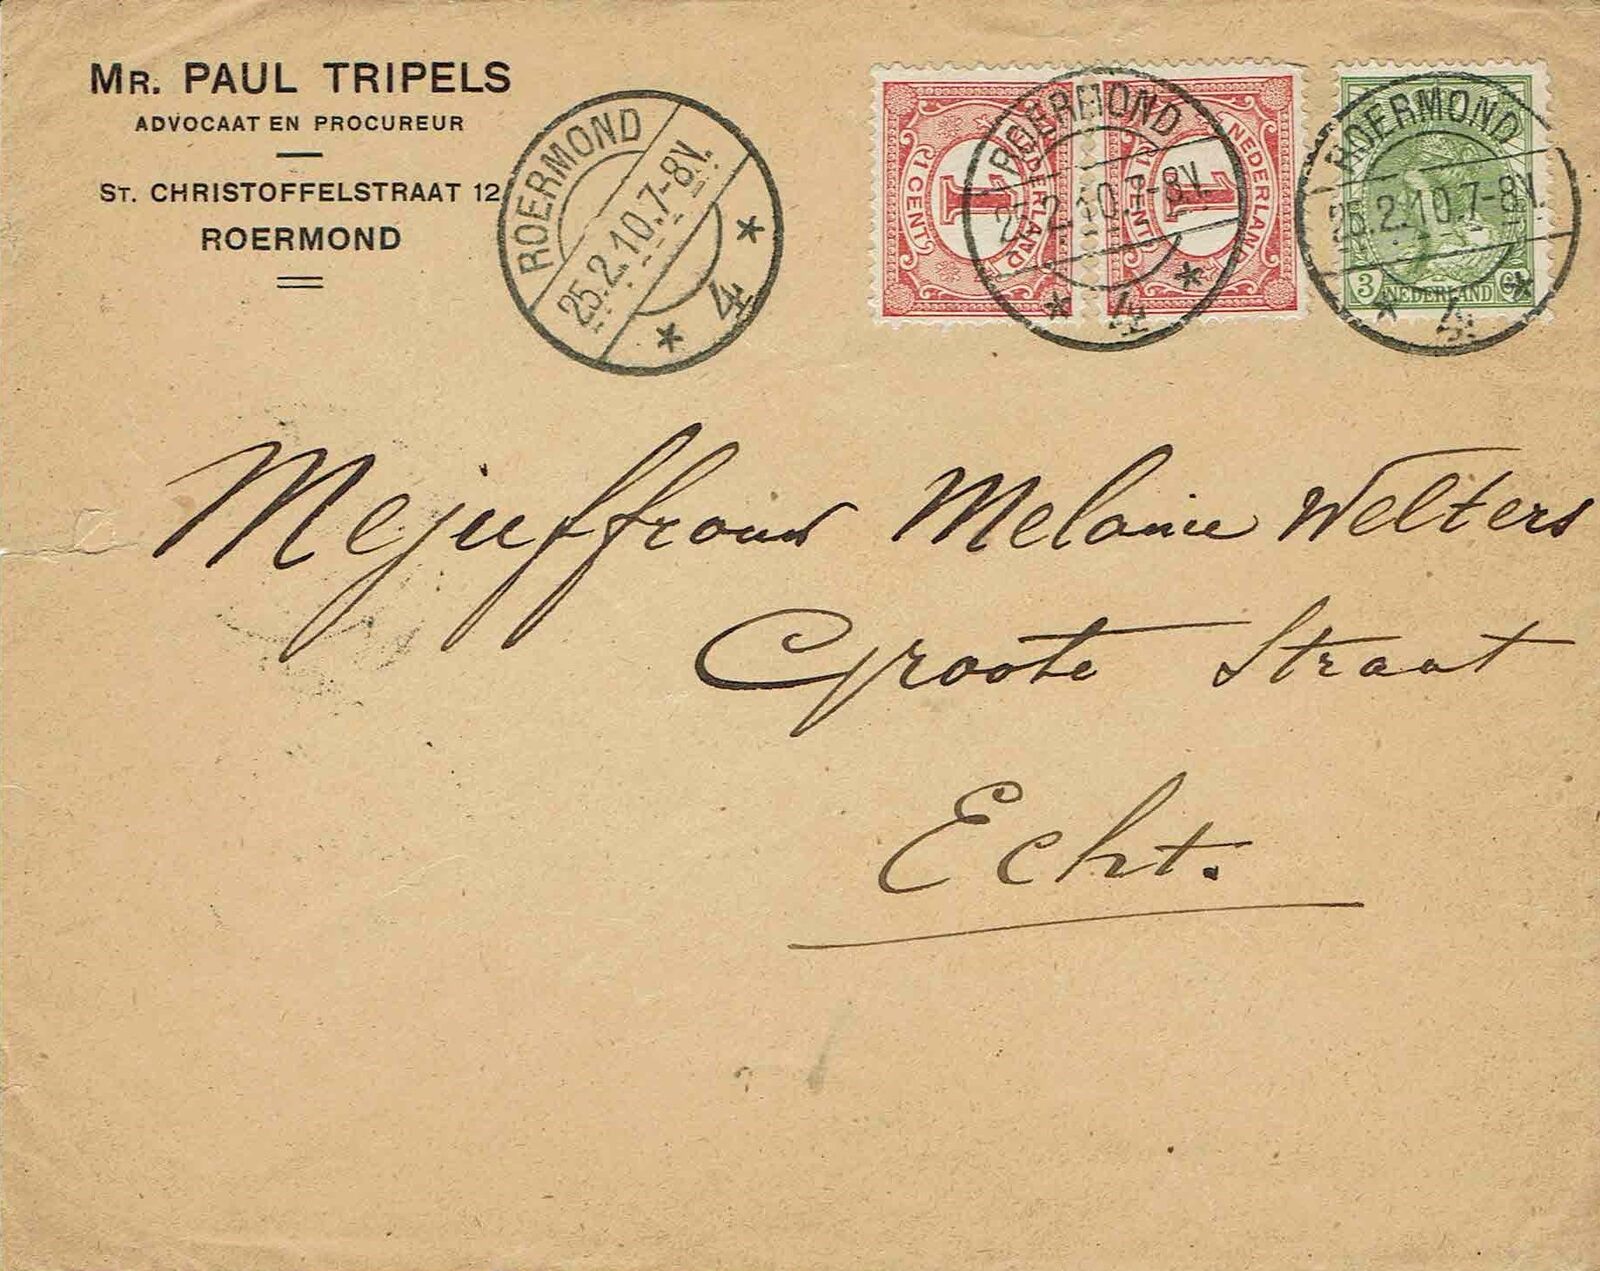 MR. PAUL TRIPELS
ADVOCAAT EN PROCUREUR
ST. CHRISTOFFELSTRAAT 12
ROERMOND
ROERMOND
25.2.10.7-8V.
* 4 *
1 CENT
1
NEDERLAND
1 CENT
1
NEDERLAND
ROERMOND
25.2.10.7-8V.
* 4 *
3 CT
NEDERLAND
ROERMOND
25.2.10.7-8V.
* 4 *
Mejuffrouw Melanie Welters
Groote Straat
Echt.